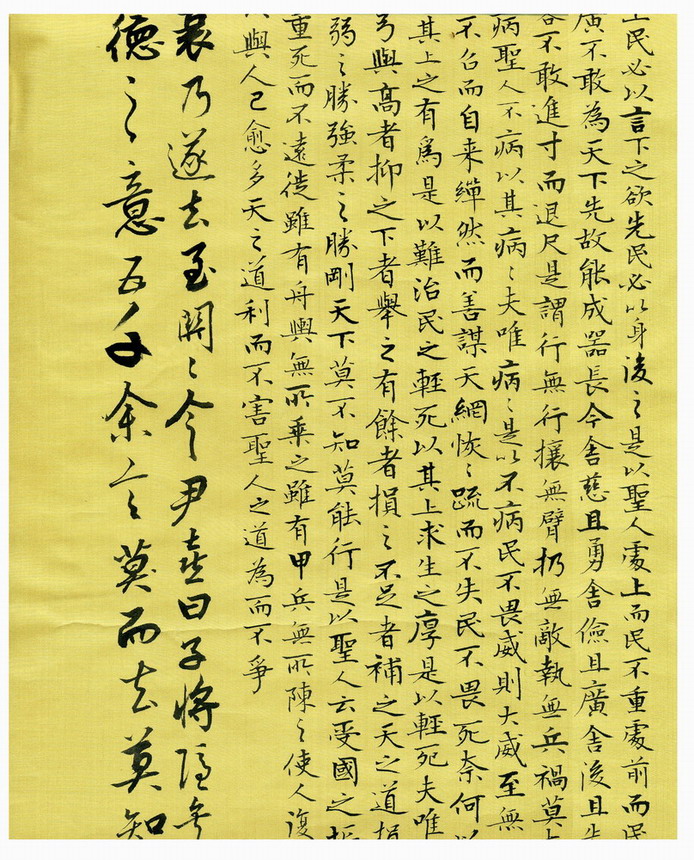 上民必以言下之欲先民必以身後之是以聖人處上而民不重處前而民
廣不敢為天下先故能成器長今舍慈且勇舍儉且廣舍後且先
客不敢進寸而退尺是謂行無行攘無臂扔無敵執無兵禍莫大
病聖人不病以其病〻夫唯病〻是以不病民不畏威則大威至無
不召而自来繟然而善謀天網恢〻疏而不失民不畏死奈何以
其上之有為是以難治民之輕死以其上求生之厚是以輕死夫唯
弓與高者抑之下者舉之有餘者損之不足者補之天之道損
弱之勝強柔之勝剛天下莫不知莫能行是以聖人云受國之垢
重死而不遠徙雖有舟輿無所乘之雖有甲兵無所陳之使人復
以與人己愈多天之道利而不害聖人之道為而不爭
衰乃遂去至關〻令尹喜曰子將隱
德之意五千余言莫而去莫知